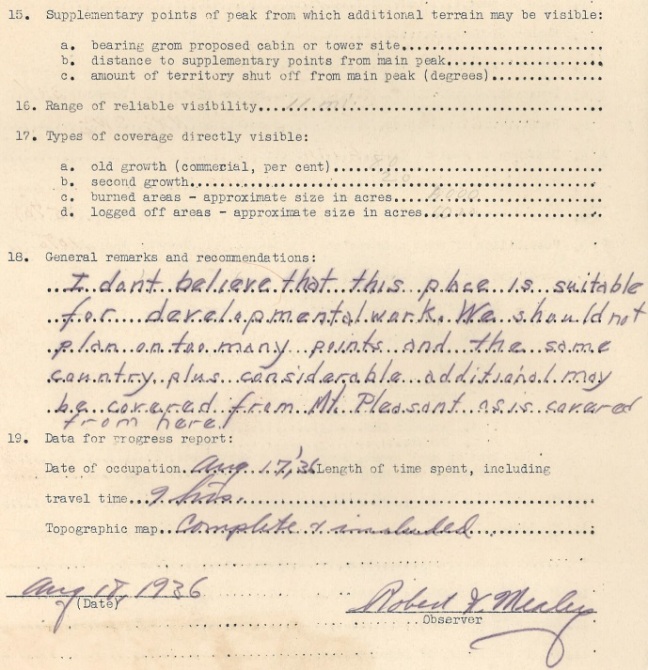 15. Supplementary points of peak from which additional terrain may be visible:
a. bearing grom proposed cabin or tower site
b. distance to supplementary points from main peak
c. amount of territory shut off from main peak (degrees)
16. Range of reliable visibility
17. Types of coverage directly visible:
a. old growth (commercial, per cent)
b. second growth
c. burned areas - approximate size in acres
d. logged off areas - approximate size in acres
18. General remarks and recommendations:
I dont believe that this place is suitable
for developmental work. We should not
plan on too many points and the same
country plus considerable additional may
be covered from Mt. Pleasant as is covered
from here!
19. Data for progress report:
Date of occupation Aug 17, 36 Length of time spent, including
travel time 9 hrs.
Topographic map Complete & included
Aug 18, 1936
(Date)
Robert Mealey
Observer